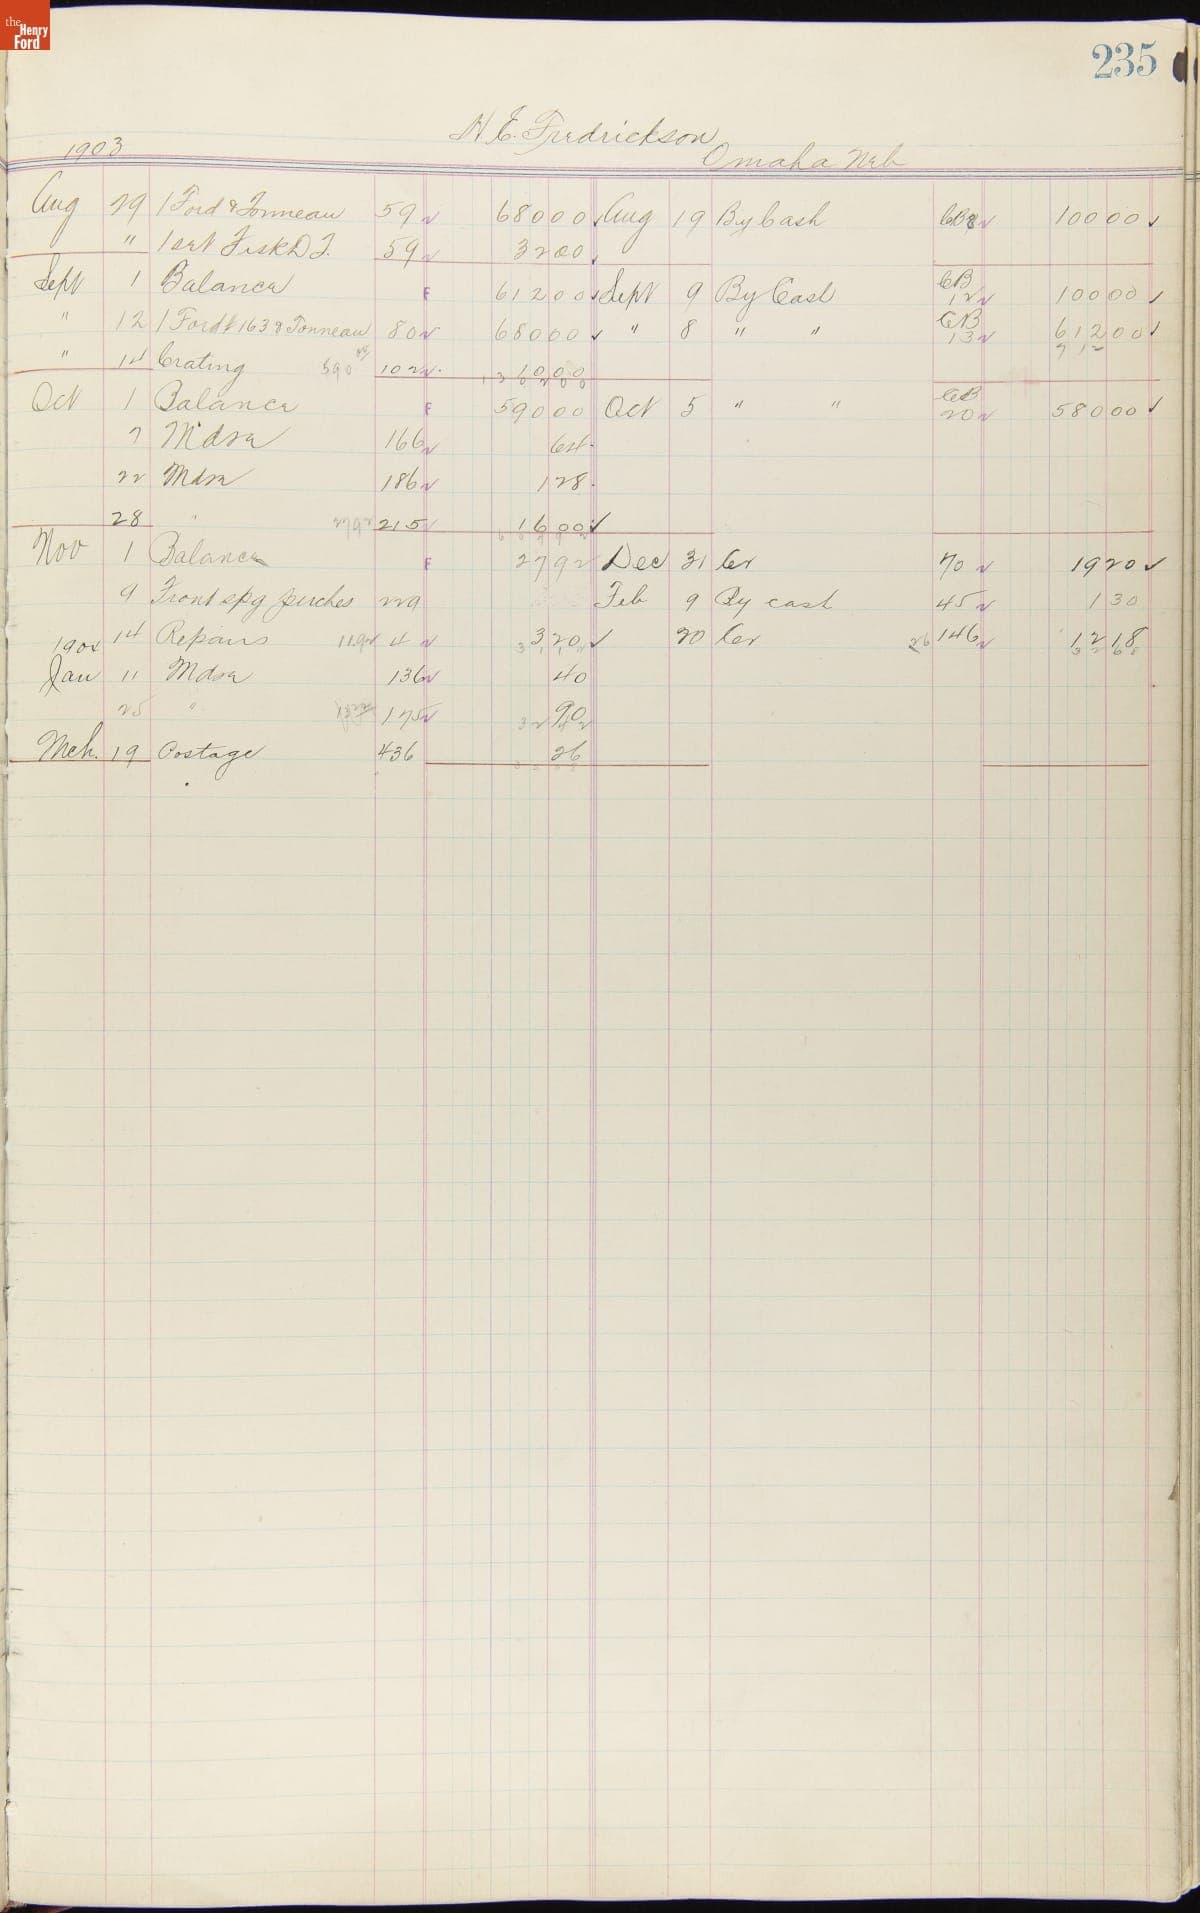 the Henry Ford
235
H. E. Fredrickson
1903 Omaha Neb
Aug 29 1 Ford & Tonneau 59 68000 Aug 19 By Cash CB8 10000
" 1 set Fisk D.T. 59 3200
Sept 1 Balance F 61200 Sept 9 By Cash CB 12 10000
" 12 1 Ford # 1638 Tonneau 80 68000 " 8 " " CB 13 61200
712
" 14 Crating 590 102 1000
136200
Oct 1 Balance F 59000 Oct 5 " " CB 20 58000
7 Mdse 166 64
22 Mdse 186 128
28 " 2792 215 1600
Nov 1 Balance F 2792 Dec 31 Cr 70 1920
9 Front spg perches 229 Feb 9 By cash 45 130
1904 14 Repairs 1192 4 320 20 Cr 26 146 1218
3112 3268
Jan 11 Mdse 136 40
25 " 175 90
3242
Mch. 19 Postage 436 26
3268